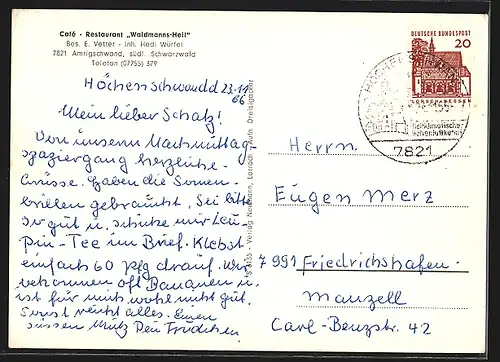 Café - Restaurant „Waldmanns-Heil"
Bes. E. Vetter - Inh. Hedi Würfel
7821 Amrigschwand, südl. Schwarzwald
Telefon (07755) 379
Höchenschwand 23.11
66
Mein lieber Schatz!
Von unserm Nachmittag-
spaziergang herzliche
Grüsse. Haben die Sonnen-
brillen gebraucht. Sei bitte
so gut u. schicke mir
Tee im Brief. Klebst
einfach 60 Pfg drauf. Wir
bekommen oft Bananen u.
ist für mich wohl nicht gut.
Sonst recht alles. Einen
süssen Mutz Dein Trudchen
Verlag
DEUTSCHE BUNDESPOST
20
LORSCH/HESSEN
7821
Herrn
Eugen Merz
7991 Friedrichshafen-
Manzell
Carl-Benzstr. 42